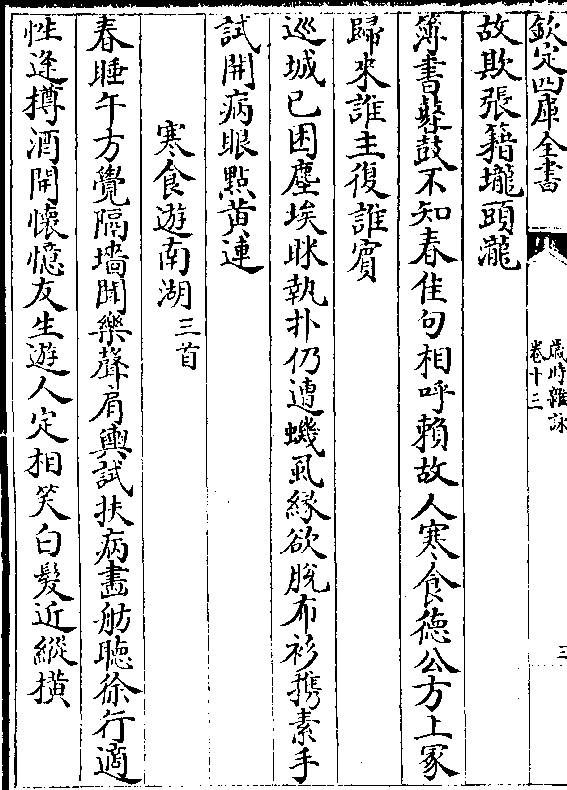 欽定四庫全書
歲時雜詠
卷十三
三
故欺張籍壠頭瀧
簿書鼛鼓不知春佳句相呼賴故人寒食德公方上冢
歸來誰主復誰賔
巡城已困塵埃眯執扑仍遭蟣虱緣欲脫布衫攜素手
試開病眼㸃黄連
寒食遊南湖三首
春睡午方覺隔墻聞樂聲肩輿試扶病畫舫聽徐行適
性逢樽酒開懷憶友生遊人定相笑白髮近縱横